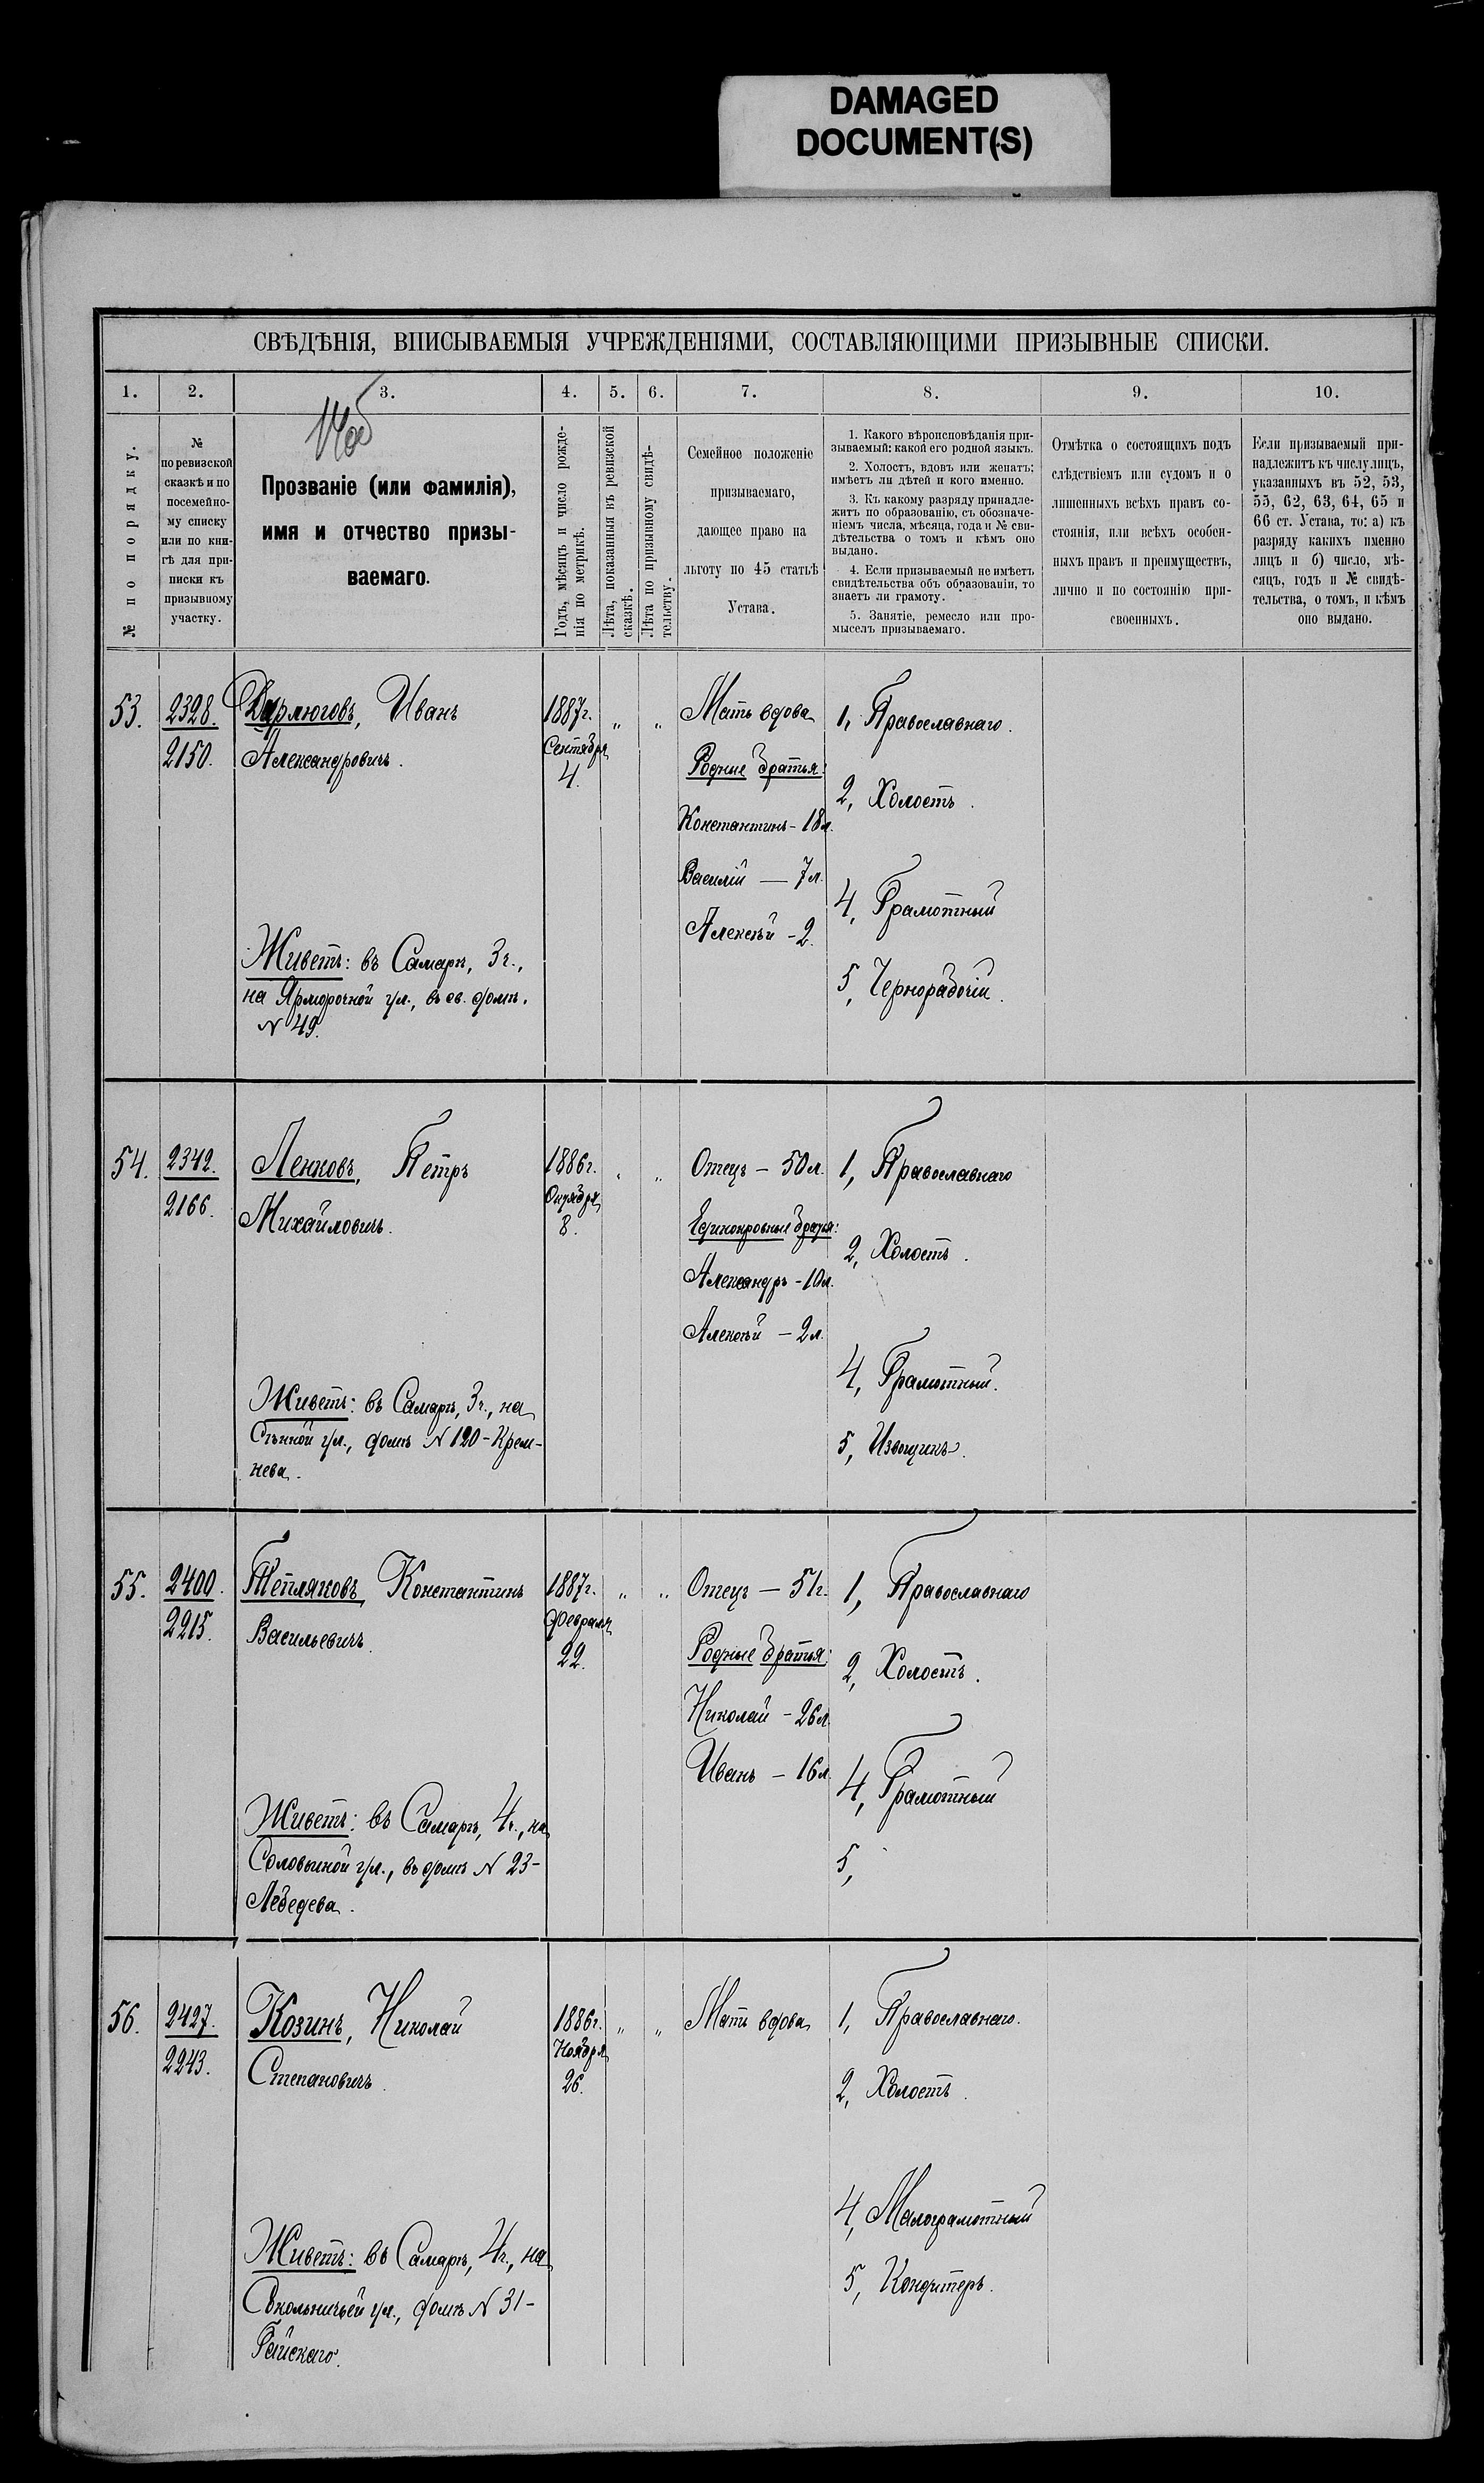 DAMAGED
DOCUMENT(S)
СВѢДѢНІЯ, ВПИСЫВАЕМЫЯ УЧРЕЖДЕНІЯМИ, СОСТАВЛЯЮЩИМИ ПРИЗЫВНЫЕ СПИСКИ.
1. 2. 3. 4. 5. 6. 7. 8. 9. 10.
№ по порядку.
№
по ревизской
сказкѣ и по
посемейно-
му списку
или по кни-
гѣ для при-
писки къ
призывному
участку.
Прозваніе (или фамилія),
имя и отчество призы-
ваемаго.
Годъ, мѣсяцъ и число рожде-
нія по метрикѣ.
Лѣта, показанныя въ ревизской
сказкѣ.
Лѣта по призывному свидѣ-
тельству.
Семейное положеніе
призываемаго,
дающее право на
льготу по 45 статьѣ
Устава.
1. Какого вѣроисповѣданія при-
зываемый; какой его родной языкъ.
2. Холостъ, вдовъ или женатъ;
имѣетъ ли дѣтей и кого именно.
3. Къ какому разряду принадле-
житъ по образованію, съ обозначе-
ніемъ числа, мѣсяца, года и № сви-
дѣтельства о томъ и кѣмъ оно
выдано.
4. Если призываемый не имѣетъ
свидѣтельства объ образованіи, то
знаетъ ли грамоту.
5. Занятіе, ремесло или про-
мыселъ призываемаго.
Отмѣтка о состоящихъ подъ
слѣдствіемъ или судомъ и о
лишенныхъ всѣхъ правъ со-
стоянія, или всѣхъ особен-
ныхъ правъ и преимуществъ,
лично и по состоянію при-
своенныхъ.
Если призываемый при-
надлежитъ къ числу лицъ,
указанныхъ въ 52, 53,
55, 62, 63, 64, 65 и
66 ст. Устава, то: а) къ
разряду какихъ именно
лицъ и б) число, мѣ-
сяцъ, годъ и № свидѣ-
тельства, о томъ, и кѣмъ
оно выдано.
53.
2328.
2150.
Иванъ
Александровичъ.
Живетъ: въ Самарѣ, 3ч.,
на Ярморочной ул., въ св. домѣ.
N 49.
1887г.
Сентября
4.
" "
Мать вдова
Родные братья:
Константинъ - 18л.
Василій — 7л.
Алексѣй - 2.
1, Православнаго.
2, Холостъ.
4, Грамотный
5, Чернорабочій.
54.
2342.
2166.
Ленковъ, Петръ
Михайловичъ.
Живетъ: въ Самарѣ, 3ч., на
Сѣнной ул., домѣ N 120 - Крем-
нева.
1886г.
Октября
8.
" "
Отецъ — 50л.
Единокровные братья:
Александръ - 10л.
Алексѣй - 2л.
1, Православнаго
2, Холостъ.
4, Грамотный.
5, Извощикъ.
55.
2400.
2215.
Тепляковъ, Константинъ
Васильевичъ.
Живетъ: въ Самарѣ, 4ч., на
Соловьиной ул., въ домѣ N 23 -
Лебедева.
1887г.
Февраля
22.
" "
Отецъ — 51г.
Родные братья:
Николай - 26л.
Иванъ - 16л.
1, Православнаго
2, Холостъ.
4, Грамотный
5,
56.
2427.
2243.
Козинъ, Николай
Степановичъ.
Живетъ: въ Самарѣ, 4ч., на
Сокольничьей ул., домѣ N 31 -
Райскаго.
1886г.
Ноября
26.
" "
Мать вдова
1, Православнаго.
2, Холостъ.
4, Малограмотный
5, Кондитеръ.